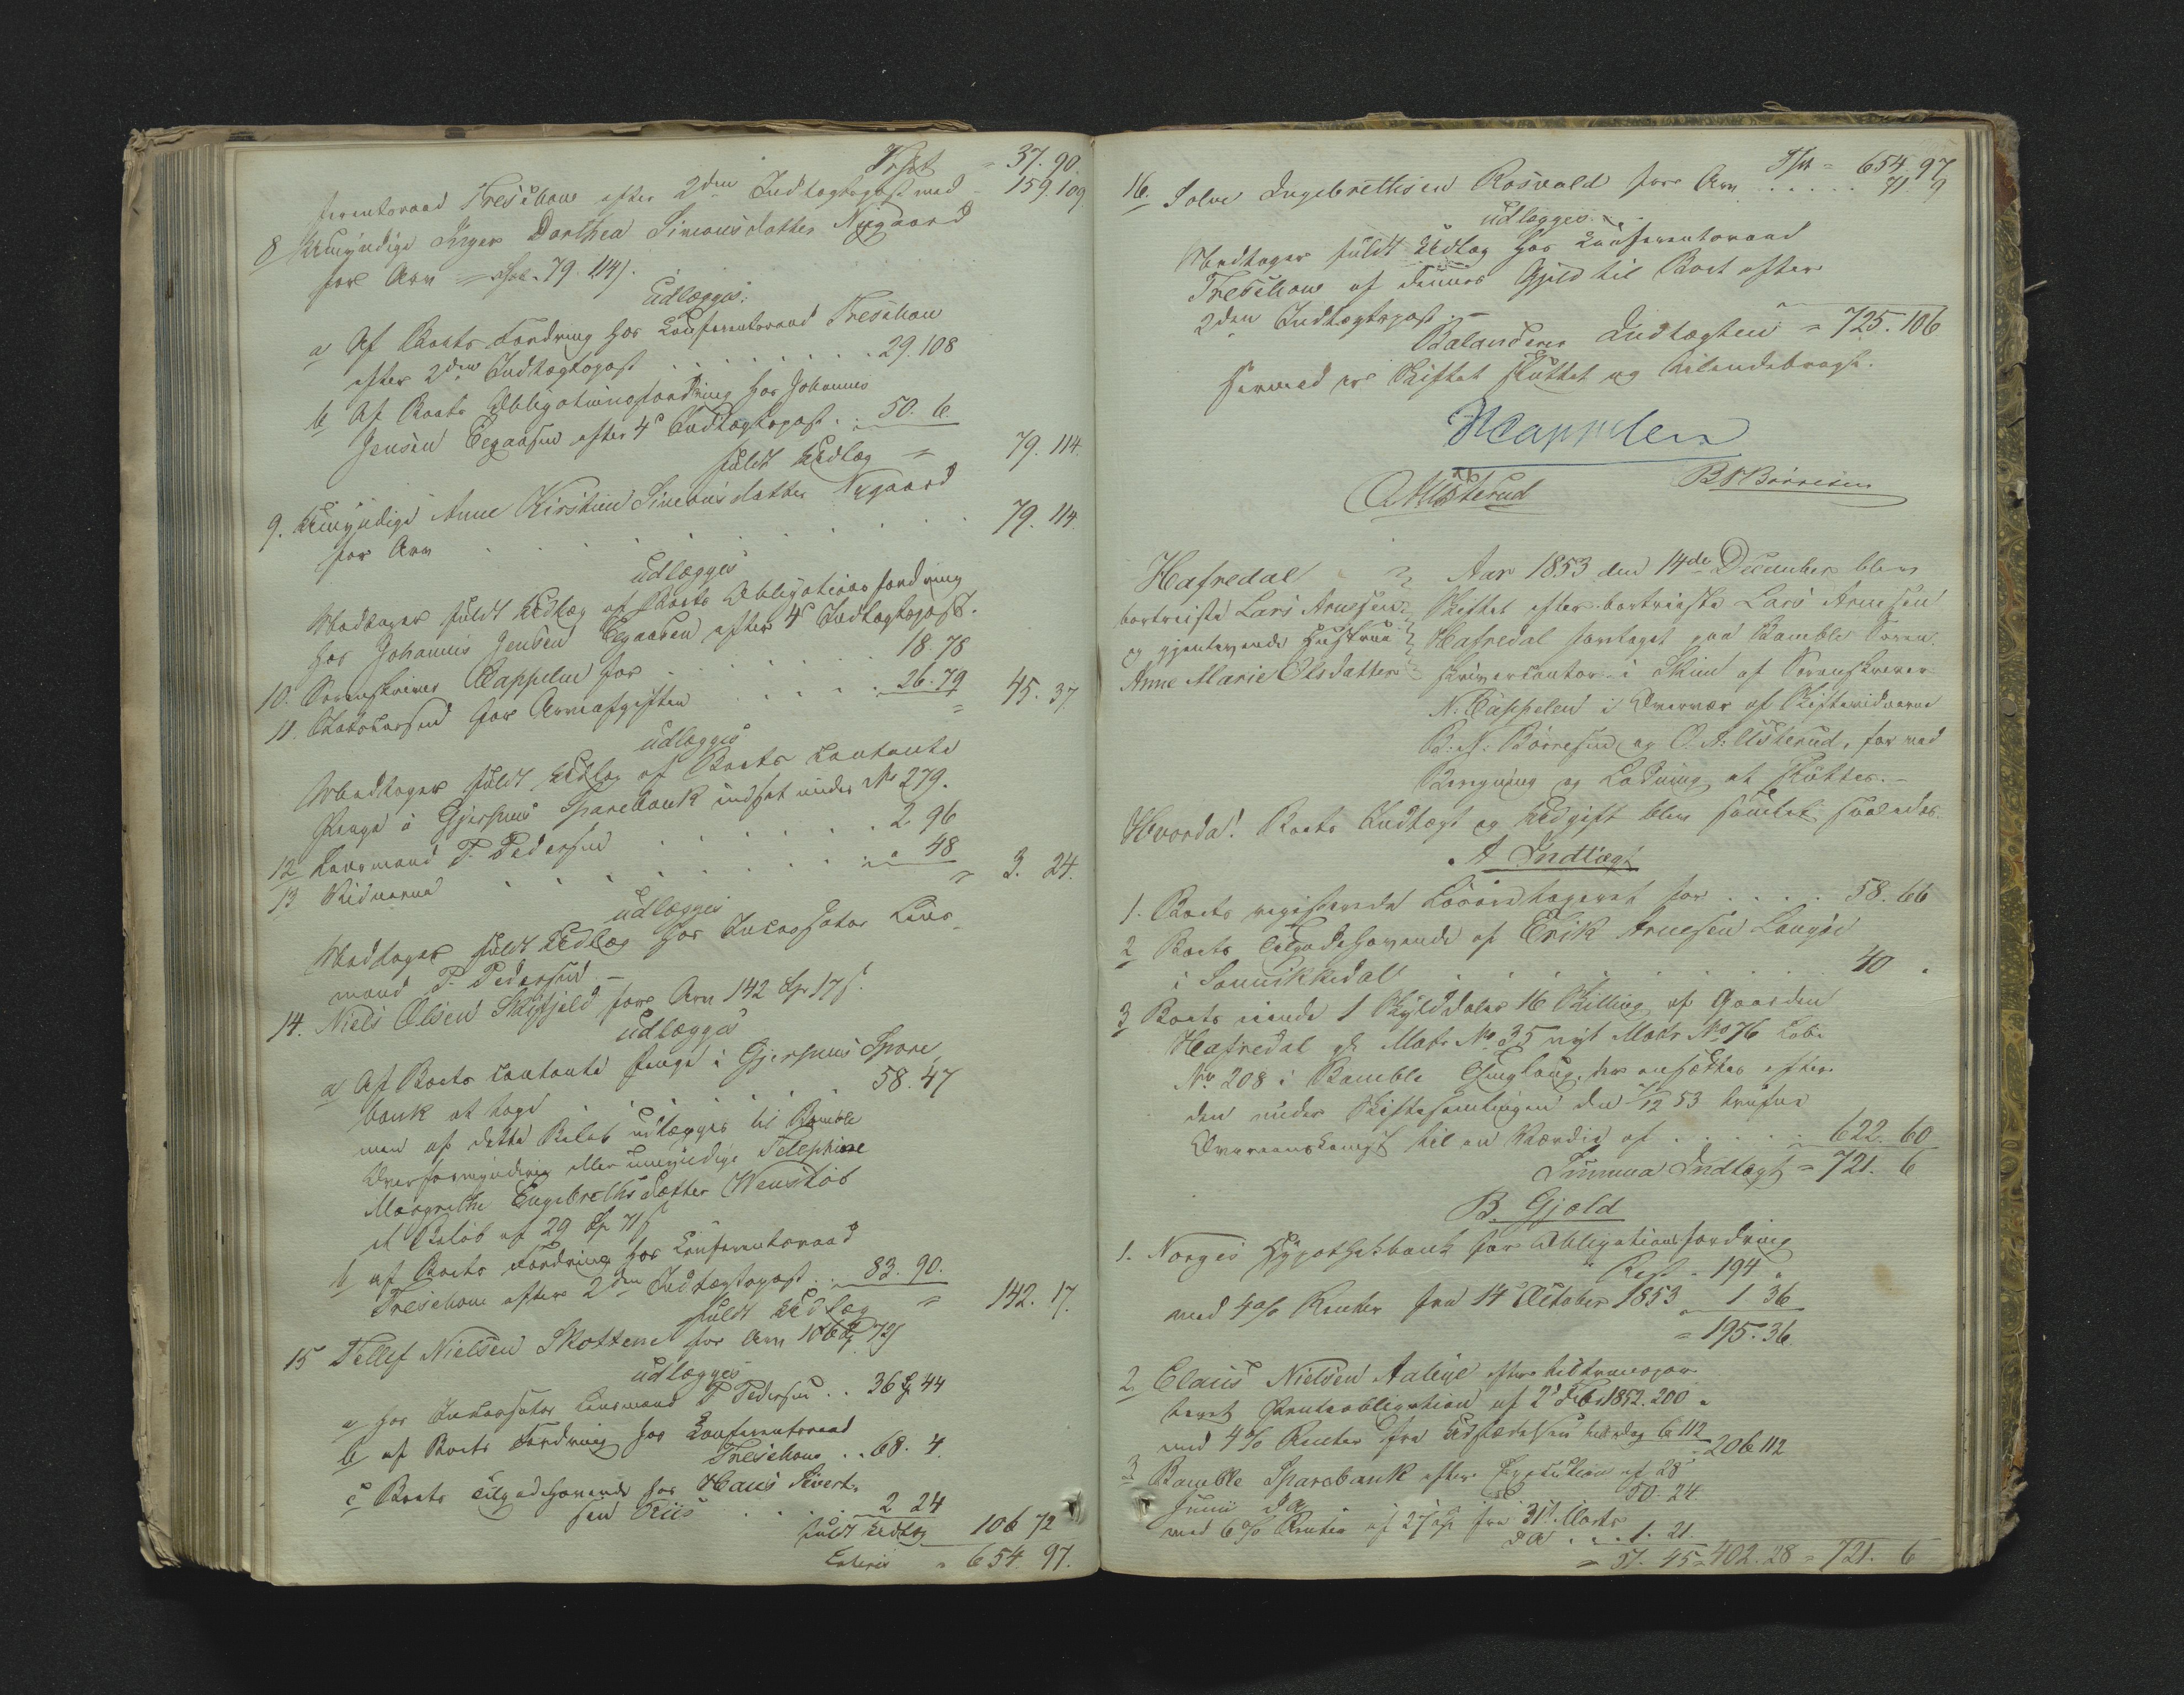 Trspt = 37. 90.
ferentsraad Treschow efter 2den Indtægtspost med - 159. 109
8 Umyndige Inger Dorthea Simonsdatter Nygaard
for Arv = Spd. 79. 114 s.
udlægges:
a Af Boets Fordring hos Conferentsraad Treschow
efter 2den Indtægtspost . . . . . . . 29. 108
b Af Boets Obligationsfordring hos Johannes
Jensen Eegaasen efter 4de Indtægtspost . . 50. 6.
fuldt Udlæg = 79. 114.
9. Umyndige Anne Kirstine Simonsdatter Nygaard
for Arv . . . . . . . . 79. 114.
udlægges
Modtager fuldt Udlæg af Boets Obligationsfordring
hos Johannes Jensen Eegaasen efter 4de Indtægtspost.
10. Sorenskriver Cappelen for . . . . . . 18. 78
11. Statskassen for Arveafgiften . . . . 26. 79
= 45. 37
udlægges
Modtager fuldt Udlæg af Boets contante
Penge i Gjerpens Sparebank indsat under No 279.
12 Lensmand P. Pedersen . . . . . . 2 96
13 Vidnerne . . . . . . . . " 48
= 3. 24.
udlægges
Modtager fuldt Udlæg hos Incassator Lens-
mand P. Pedersen. -
14. Niels Olsen Skifjeld for Arv 142 Sp 17 s.
udlægges
a Af Boets contante Penge i Gjerpens Spare-
bank at tage . . . . . . 58. 47
men af dette Beløb udlægges til Bamble
Overformynderi eller umyndige Telephine
Margrethe Engebrethsdatter Wenstøb
et Beløb af 29 Sp 71 s
b af Boets Fordring hos Conferentsraad
Treschow efter 2den Indtægtspost . . 83. 90.
fuldt Udlæg = 142. 17.
15 Tellef Nielsen Skottene for Arv 106 Sp 72 s
udlægges
a hos Incassator Lensmand P Pedersen . . 36 Sp 44
b af Boets Fordring hos Conferentsraad
Treschow . . 68. 4.
c Boets Tilgodehavende hos Hans Sivert-
sen Riis . . . . 2 24
fuldt Udlæg 106 72
Lateris = 654. 97.
Tspt = 654. 97
16. Solve Ingebrethsen Rosvald for Arv . . . . . 71. 9
udlægges
Modtager fuldt Udlæg hos Conferentsraad
Treschow af dennes Gjæld til Boet efter
2den Indtægtspost. -
Balancerer Indtægten = 725. 106
hermed er Skiftet sluttet og tilendebragt.
NCappelen
OAUsterud BNBørresen
Hafredal
bortreiste Lars Arnesen
og gjenlevende Hustrue
Anne Marie Olsdatter
Aar 1853 den 14de December blev
Skiftet efter bortreiste Lars Arnesen
Hafredal foretaget paa Bamble Soren-
skrivercontor i Skien af Sorenskriver
N. Cappelen i Overvær af Skiftevidnerne
B: N: Børresen og O. A: Usterud, for ved
Beregning og Lodning at sluttes. -
Hvorda! Boets Indtægt og Udgift blev samlet saaledes
A Indtægt
1. Boets registrerede Løsøre tageret for . . . . 58. 66
2 Boets Tilgodehavende af Erik Arnesen Langøe
i Sannikkedal . . . . . . . . . 40 "
3 Boets eiende 1 Skylddaler 16 Skilling af Gaarden
Hafredal gl. Matr No 35 nyt Matr No 76 Løbe
No 208 i Bamble Thinglaug, her ansættes efter
den under Skiftesamlingen den 7/12 53 trufne
Overeenskomst til en Værdie af . . . . . 622. 60
Summa Indtægt = 721. 6
B. Gjæld
1. Norges Hypothekbank for Obligationsfordring
Rest - 194 "
med 4 o/o Renter fra 14 October 1853 1 36
= 195. 36.
2 Claus Nielsen Aaleye efter tiltranspor-
teret Panteobligation af 2de Feb: 1852. 200 "
med 4 o/o Renter fra Udstædelsen 6 112
206 112
3 Bamble Sparebank efter Execution af 28
Junii d A 50. 24.
med 6 o/o Renter af 27 Sp fra 31te Marts
d A . . . 1. 21.
= 51. 45 = 402. 28 = 721. 6